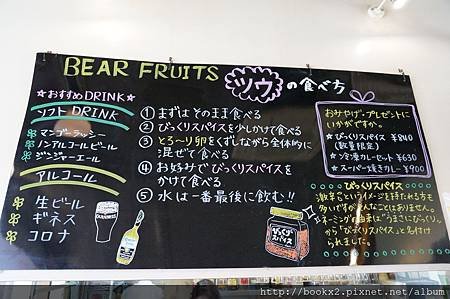 BEAR FRUITS ツウの食べ方
☆おすすめDRINK☆
ソフトDRINK
マンゴーラッシー
ノンアルコールビール
ジンジャーエール
アルコール
生ビール
ギネス
コロナ
① まずはそのまま食べる
② びっくりスパイスを少しかけて食べる
③ とろ〜り卵をくずしながら全体的に
混ぜて食べる
④ お好みでびっくりスパイスを
かけて食べる
⑤ 水は一番最後に飲む!!
GUINNESS
びっくり
スパイス
おみやげ・プレゼントに
いかがですか。
★びっくりスパイス ¥840
(数量限定)
★冷凍カレーセット ¥630
★スーパー焼きカレー ¥900
びっくりスパイス
激辛というイメージを持たれる方も
多いですが
ネーミングの由来は"うまさにびっくり"
から「びっくりスパイス」と名付け
られました。
http://bookx2.pixnet.net/album